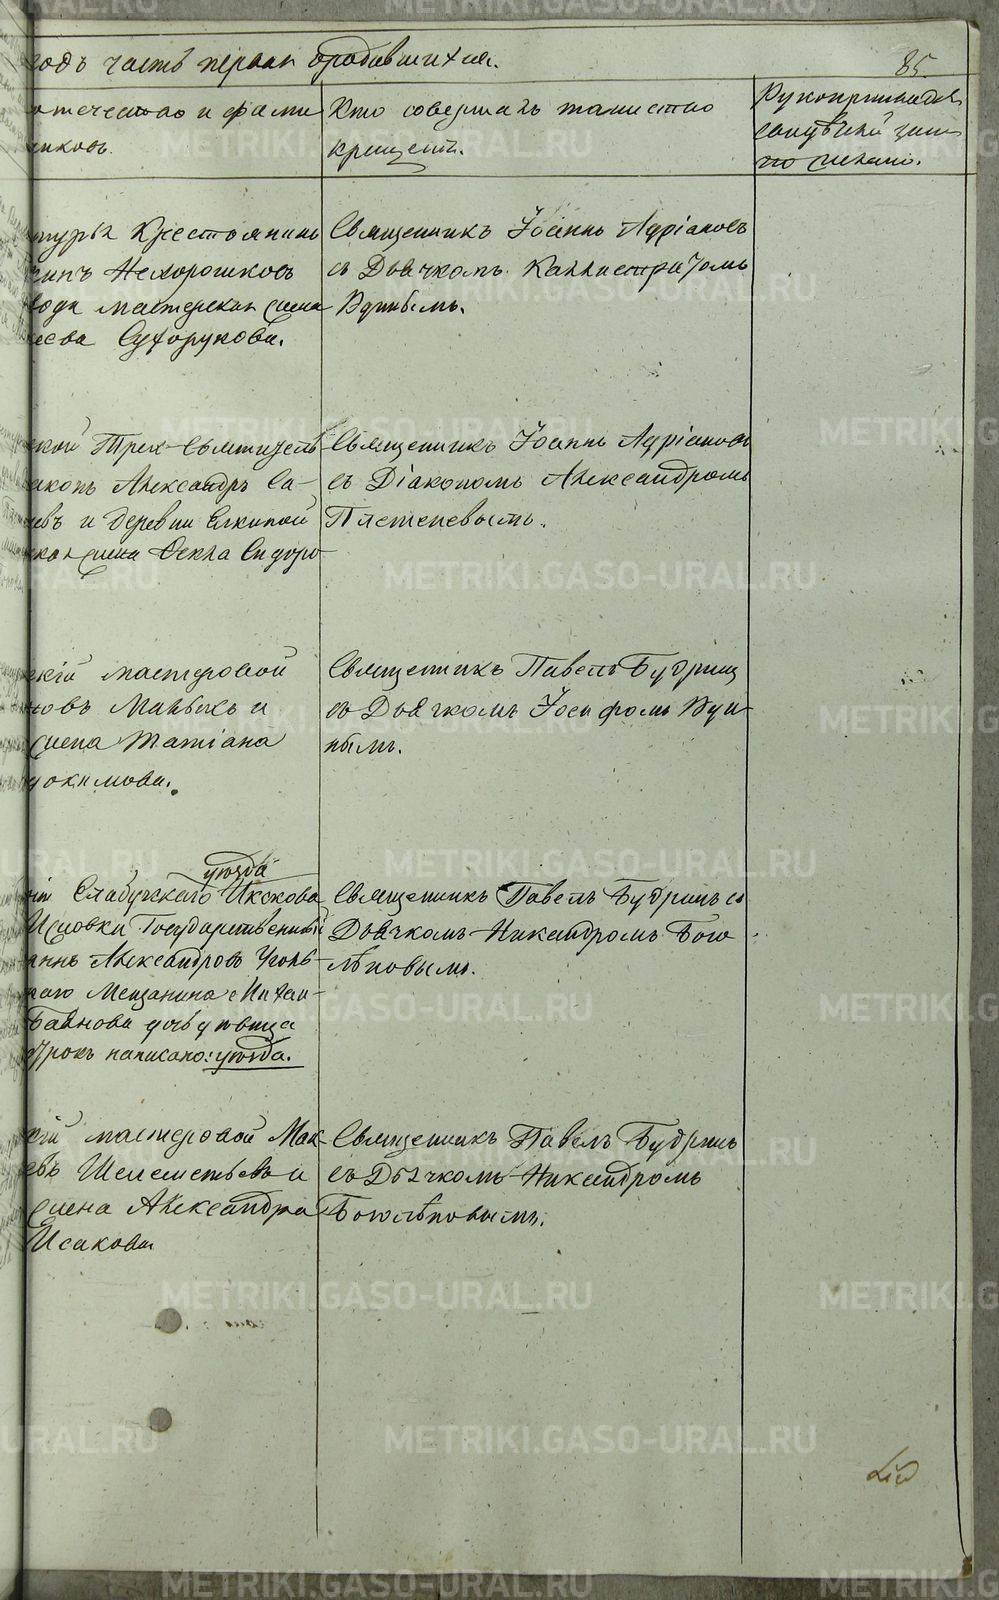 годъ часть первая о родившихся.
85.
отечество и фами
Кто совершалъ таинство
крещенія.
Рукоприкладс
свидѣтелей запи
по желанію.
туры Крестьянинъ
Нехорошковъ
вода мастерская жена
еева Сухорукова.
Священникъ Іоаннъ Адріановъ
съ Дьячкомъ Каллистратомъ
ской Трех-Святитель
іаконъ Александръ Са-
евъ и деревни Елкиной
ская жена Ѳекла Сидоро
Священникъ Іоаннъ Адріановъ
съ Діакономъ Александромъ
Плетеневымъ.
скій мастеровой
новъ Мальцъ и
жена Татіана
докимова.
Священникъ Павелъ Будринъ
съ Дьячкомъ Іосифомъ
нымъ.
уѣзда
Елабужскаго Икскова
Исповки Государственный
аннъ Александровъ
наго Мещанина Михаи-
дочь дѣвица
Строкъ написано: уѣзда.
Священникъ Павелъ Будринъ съ
Дьячкомъ Никандромъ Бого
лѣповымъ.
кій мастеровой Мак
евъ Шелеметьевъ и
жена Александра
Исакова
Священникъ Павелъ Будринъ
съ Дьячкомъ Никандромъ
Боголѣповымъ.
METRIKI.GASO-URAL.RU